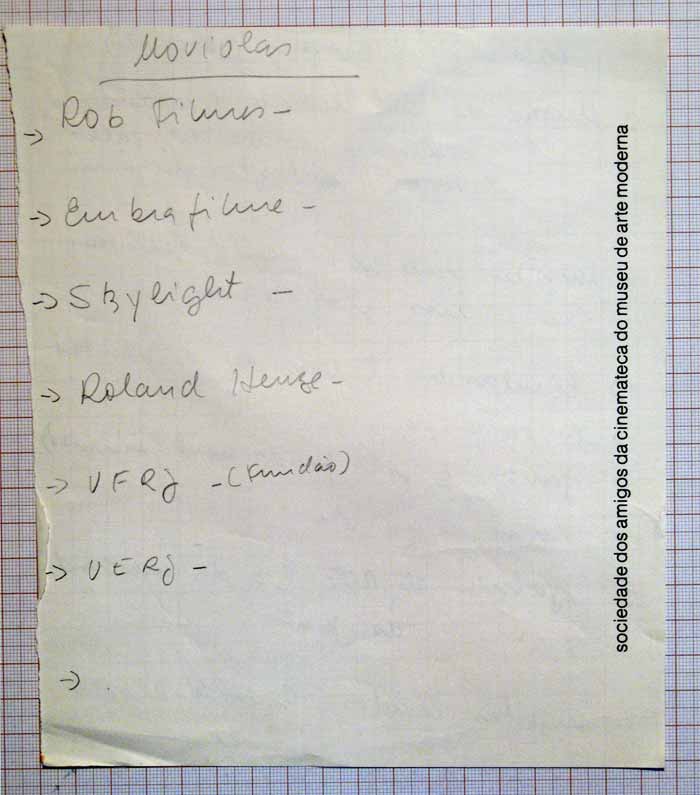 Moviolas
→ Rob Filmes -
→ Embrafilme -
→ Skylight -
→ Roland Henze -
→ UFRJ - (Fundão)
→ UERJ -
→
sociedade dos amigos da cinemateca do museu de arte moderna